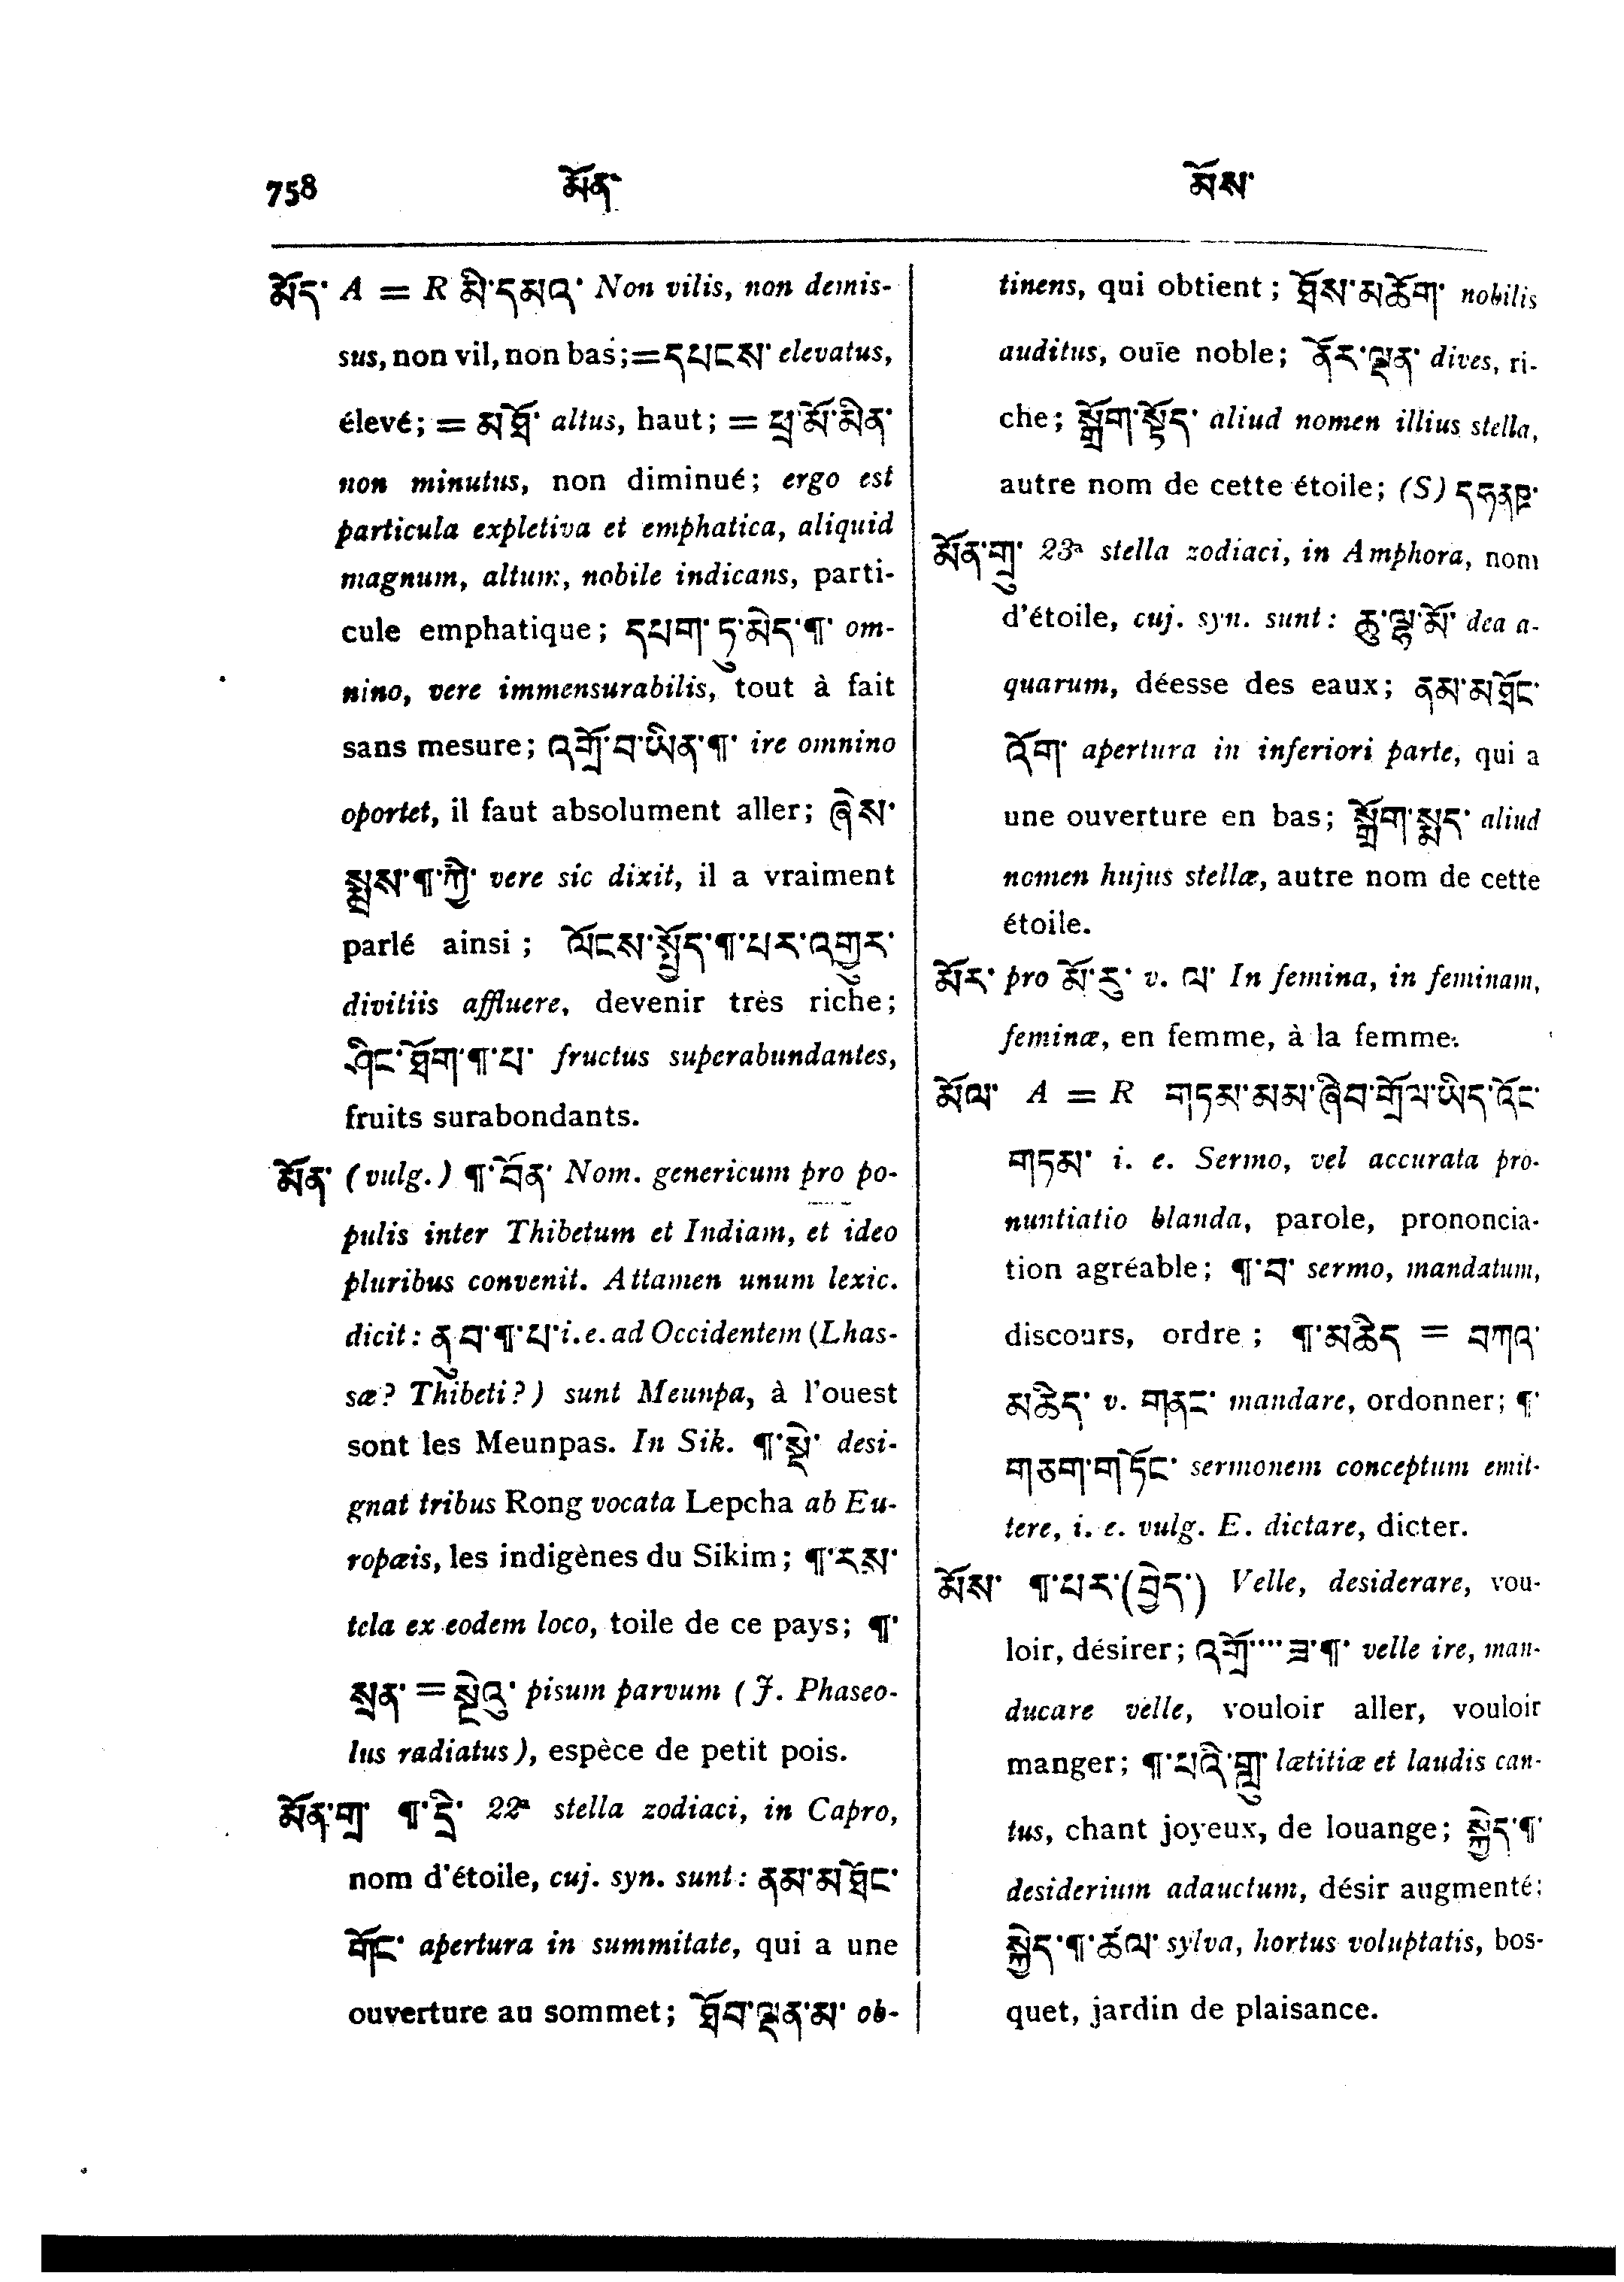 758 མོན་ མོས་
མོད་ A = R མི་དམའ་ Non vilis, non demis-
sus, non vil, non bas; = དཔངས་ elevatus,
élevé; = མཐོ་ altus, haut; = ཕྲ་མོ་མིན་
non minutus, non diminué; ergo est
particula expletiva et emphatica, aliquid
magnum, altum, nobile indicans, parti-
cule emphatique; དཔག་ཏུ་མེད་¶་ om-
nino, vere immensurabilis, tout à fait
sans mesure; འགྲོ་བ་ཡིན་¶་ ire omnino
oportet, il faut absolument aller; ཞེས་
སྨྲས་¶་ཀྱི་ vere sic dixit, il a vraiment
parlé ainsi; ལོངས་སྤྱོད་¶་པར་འགྱུར་
divitiis affluere, devenir très riche;
ཤིང་ཐོག་¶་པ་ fructus superabundantes,
fruits surabondants.
མོན་ (vulg.) ¶་བོན་ Nom. genericum pro po-
pulis inter Thibetum et Indiam, et ideo
pluribus convenit. Attamen unum lexic.
dicit: ནུབ་¶་པ་ i. e. ad Occidentem (Lhas-
sæ? Thibeti?) sunt Meunpa, à l'ouest
sont les Meunpas. In Sik. ¶་སྡེ་ desi-
gnat tribus Rong vocata Lepcha ab Eu-
ropæis, les indigènes du Sikim; ¶་རས་
tela ex eodem loco, toile de ce pays; ¶་
སྲན་ = སྡེའུ་ pisum parvum (J. Phaseo-
lus radiatus), espèce de petit pois.
མོན་གྲ་ ¶་དྲེ་ 22ª stella zodiaci, in Capro,
nom d'étoile, cuj. syn. sunt: ནམ་མཐོང་
གོང་ apertura in summitate, qui a une
ouverture au sommet; ཐོབ་ལྡན་མ་ ob-
tinens, qui obtient; ཐོས་མཆོག་ nobilis
auditus, ouïe noble; ནོར་ལྡན་ dives, ri-
che; སྒྲོག་སྟོད་ aliud nomen illius stella,
autre nom de cette étoile; (S)
མོན་གྲུ་ 23ª stella zodiaci, in Amphora, nom
d'étoile, cuj. syn. sunt: ཆུ་ལྷ་མོ་ dea a-
quarum, déesse des eaux; ནམ་མཐོང་
འོག་ apertura in inferiori parte, qui a
une ouverture en bas; སྒྲོག་སྨད་ aliud
nomen hujus stellæ, autre nom de cette
étoile.
མོར་ pro མོ་རུ་ v. ལ་ In femina, in feminam,
feminæ, en femme, à la femme.
མོལ་ A = R གཏམ་མམ་ཞིབ་གྲོལ་ཡིད་འོང་
གཏམ་ i. e. Sermo, vel accurata pro-
nuntiatio blanda, parole, prononcia-
tion agréable; ¶་བ་ sermo, mandatum,
discours, ordre; ¶་མཆིད = བཀའ་
མཆིད་ v. གནང་ mandare, ordonner; ¶་
གཅག་གཏོང་ sermonem conceptum emit-
tere, i. e. vulg. E. dictare, dicter.
མོས་ ¶་པར་(བྱེད་) Velle, desiderare, vou-
loir, désirer; འགྲོ་···ཟ་¶་ velle ire, man-
ducare velle, vouloir aller, vouloir
manger; ¶་པའི་གླུ་ lætitiæ et laudis can-
tus, chant joyeux, de louange; སྐྱེད་¶་
desiderium adauctum, désir augmenté;
སྐྱེད་¶་ཚལ་ sylva, hortus voluptatis, bos-
quet, jardin de plaisance.